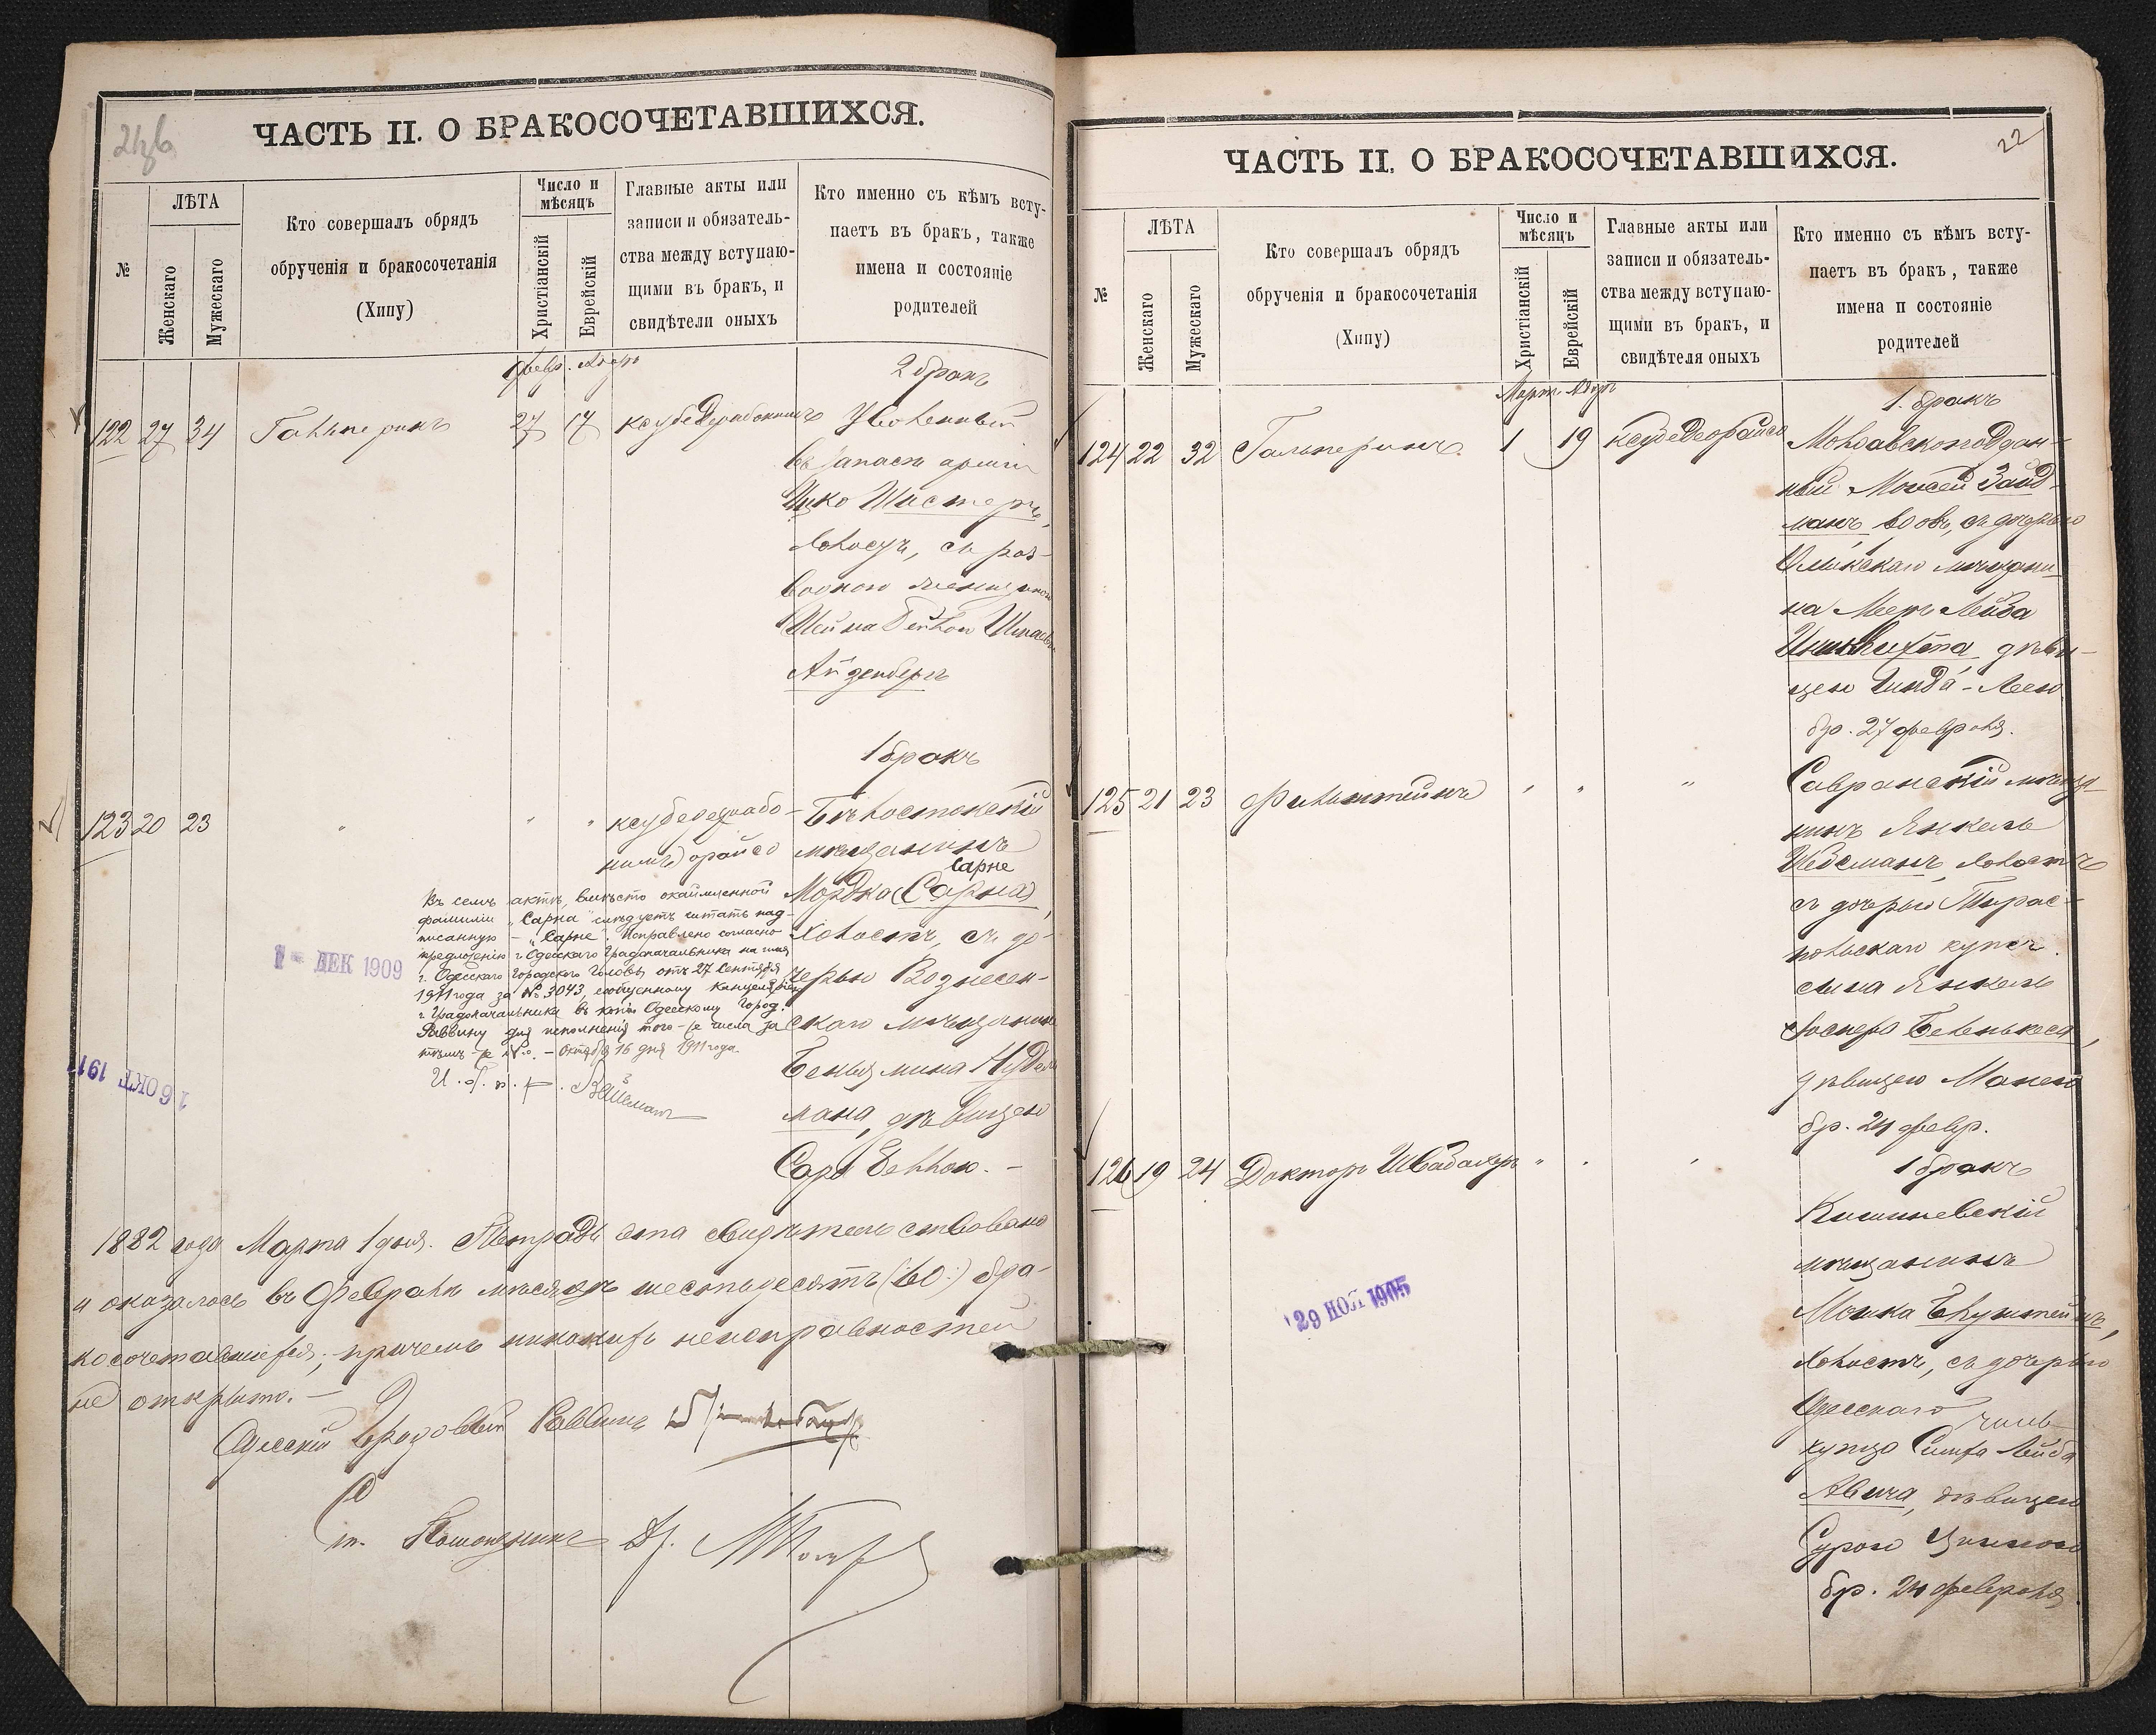 21об
ЧАСТЬ II. О БРАКОСОЧЕТАВШИХСЯ.
№
ЛѢТА
Женскаго
Мужескаго
Кто совершалъ обрядъ
обрученія и бракосочетанія
(Хипу)
Число и
мѣсяцъ
Христіанскій
Еврейскій
Главные акты или
записи и обязатель-
ства между вступаю-
щими въ бракъ, и
свидѣтели оныхъ
Кто именно съ кѣмъ всту-
паетъ въ бракъ, также
имена и состояніе
родителей
Февр. Адаръ
2 бракъ
122 27 34 Гальперинъ 27 17 Уволенный
въ запасъ арміи
Ицко Шистеръ,
холостъ, съ раз-
водною женщиною
Шейна Бейлою
Айзенбергъ
1 бракъ
123 20 23 " " " ксубедерабо- Бѣлостокскій
нимъ орайсо мѣщанинъ
Сарне
Мордко (Сарна),
холостъ, съ до-
черью Вознесен-
скаго мѣщанина
Беньямина Нудель-
мана, дѣвицею
Сара Беллою. –
Въ семъ актѣ, вмѣсто окаймленной
фамиліи „Сарна" слѣдуетъ читать над-
писанную – „Сарне". Исправлено согласно
предложенію г. Одесскаго Градоначальника на имя
г. Одесскаго Городского Головы отъ 27 Сентября
1911 года за № 3043, сообщенному Канцеляріею
г. Градоначальника въ копіи Одесскому Город.
Раввину для исполненія того-же числа за
тѣмъ-же №. – Октября 16 дня 1911 года.
1 - ДЕК 1909
16 ОКТ 1911
1882 года Марта 1 дня. Тетрадь эта свидѣтельствована
и оказалось въ Февралѣ мѣсяцѣ шестьдесятъ (:60:) бра-
косочетавшихся, причемъ никакихъ неисправностей
не открыто. –
Одесскій Городовый Раввинъ
Помощникъ Др.
22
ЧАСТЬ II. О БРАКОСОЧЕТАВШИХСЯ.
№
ЛѢТА
Женскаго
Мужескаго
Кто совершалъ обрядъ
обрученія и бракосочетанія
(Хипу)
Число и
мѣсяцъ
Христіанскій
Еврейскій
Главные акты или
записи и обязатель-
ства между вступаю-
щими въ бракъ, и
свидѣтеля оныхъ
Кто именно съ кѣмъ всту-
паетъ въ бракъ, также
имена и состояніе
родителей
Мартъ Адаръ
1. бракъ
124 22 32 Гальперинъ 1 19 ксубедеорайсо Молдавскоподдан-
ный Моисей Зайд-
манъ, вдовъ, съ дочерью
мѣщани-
на Меер Лейба
дѣви-
цею Линда-Леею
бр. 27 февраля.
125 21 23 Фихтенштейнъ " " " Савранскій мѣща-
нинъ Янкель
Шейсманъ, холостъ
съ дочерью Тирас-
польскаго купеч.
сына Янкель
Беленькеса,
дѣвицею Манею
бр. 24 февр.
126 19 24 Докторъ Швабахеръ " " " 1 бракъ
Кишиневскій
мѣщанинъ
Мошка Блуштейнъ,
холостъ, съ дочерью
Одесскаго
купца Симха Лейба
Авича, дѣвицею
Сурою
бр. 24 февраля
29 НОЯ 1905